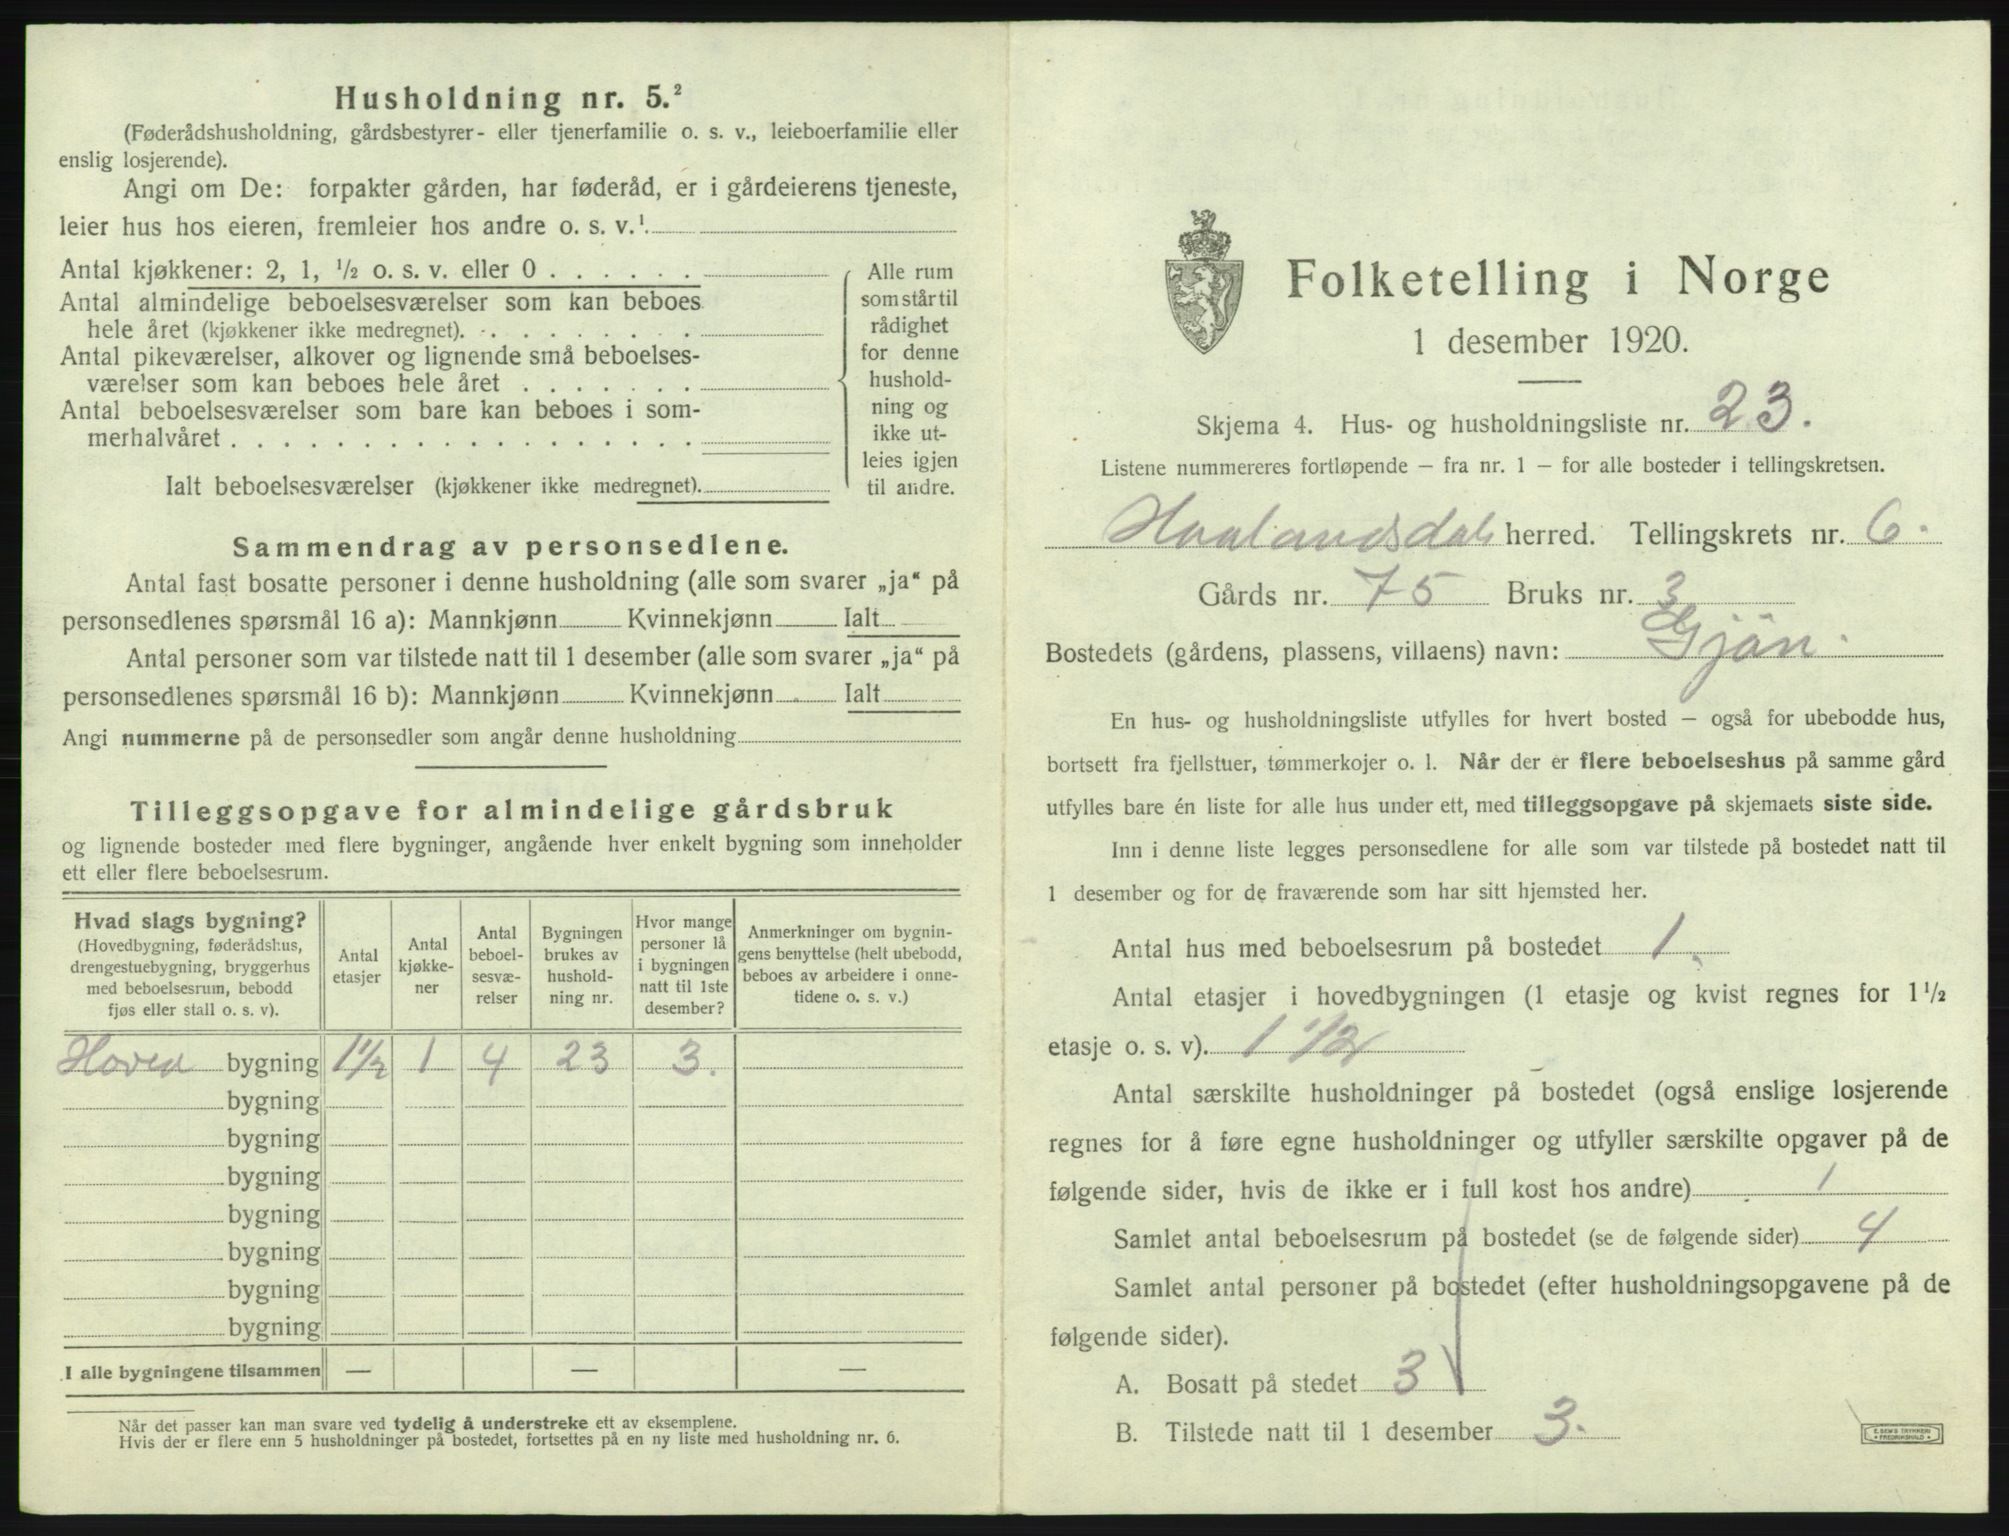 Husholdning nr. 5.²
(Føderådshusholdning, gårdsbestyrer- eller tjenerfamilie o. s. v., leieboerfamilie eller
enslig losjerende).
Angi om De: forpakter gården, har føderåd, er i gårdeierens tjeneste,
leier hus hos eieren, fremleier hos andre o. s. v.¹
Antal kjøkkener: 2, 1, ½ o. s. v. eller 0 . . . . . .
Antal almindelige beboelsesværelser som kan beboes
hele året (kjøkkener ikke medregnet). . . . . . . . .
Antal pikeværelser, alkover og lignende små beboelses-
værelser som kan beboes hele året . . . . . . .
Antal beboelsesværelser som bare kan beboes i som-
merhalvåret . . . . . . . . . . . . . . . . . .
Ialt beboelsesværelser (kjøkkener ikke medregnet).
Alle rum
som står til
rådighet
for denne
hushold-
ning og
ikke ut-
leies igjen
til andre.
Sammendrag av personsedlene.
Antal fast bosatte personer i denne husholdning (alle som svarer „ja“ på
personsedlenes spørsmål 16 a): Mannkjønn Kvinnekjønn Ialt
Antal personer som var tilstede natt til 1 desember (alle som svarer „ja“ på
personsedlenes spørsmål 16 b): Mannkjønn Kvinnekjønn Ialt
Angi nummerne på de personsedler som angår denne husholdning
Tilleggsopgave for almindelige gårdsbruk
og lignende bosteder med flere bygninger, angående hver enkelt bygning som inneholder
ett eller flere beboelsesrum.
Hvad slags bygning?
(Hovedbygning, føderådshus,
drengestuebygning, bryggerhus
med beboelsesrum, bebodd
fjøs eller stall o. s. v).
Antal
etasjer
Antal
kjøkke-
ner
Antal
beboel-
sesvæ-
relser
Bygningen
brukes av
hushold-
ning nr.
Hvor mange
personer lå
i bygningen
natt til 1ste
desember?
Anmerkninger om bygnin-
gens benyttelse (helt ubebodd,
beboes av arbeidere i onne-
tidene o. s. v.)
Hoved bygning 1½ 1 4 23 3.
bygning
bygning
bygning
bygning
bygning
bygning
bygning
I alle bygningene tilsammen — — —
Når det passer kan man svare ved tydelig å understreke ett av eksemplene.
Hvis der er flere enn 5 husholdninger på bostedet, fortsettes på en ny liste med husholdning nr. 6.
Folketelling i Norge
1 desember 1920.
Skjema 4. Hus- og husholdningsliste nr. 23.
Listene nummereres fortløpende — fra nr. 1 — for alle bosteder i tellingskretsen.
Haalandsdal herred. Tellingskrets nr. 6.
Gårds nr. 75 Bruks nr. 3
Bostedets (gårdens, plassens, villaens) navn: Gjön.
En hus- og husholdningsliste utfylles for hvert bosted — også for ubebodde hus,
bortsett fra fjellstuer, tømmerkojer o. l. Når der er flere beboelseshus på samme gård
utfylles bare én liste for alle hus under ett, med tilleggsopgave på skjemaets siste side.
Inn i denne liste legges personsedlene for alle som var tilstede på bostedet natt til
1 desember og for de fraværende som har sitt hjemsted her.
Antal hus med beboelsesrum på bostedet 1.
Antal etasjer i hovedbygningen (1 etasje og kvist regnes for 1½
etasje o. s. v). 1 1/2
Antal særskilte husholdninger på bostedet (også enslige losjerende
regnes for å føre egne husholdninger og utfyller særskilte opgaver på de
følgende sider, hvis de ikke er i full kost hos andre) 1
Samlet antal beboelsesrum på bostedet (se de følgende sider) 4
Samlet antal personer på bostedet (efter husholdningsopgavene på de
følgende sider).
A. Bosatt på stedet 3
B. Tilstede natt til 1 desember 3.
E. SEM'S TRYKKERI
FREDRIKSHALD